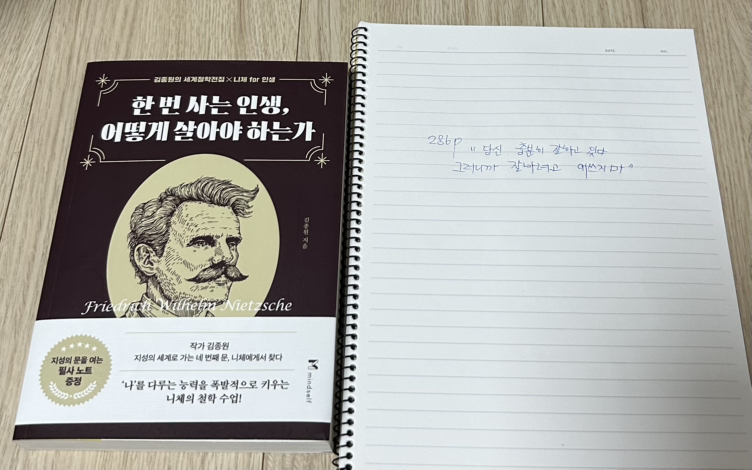 김종원의 세계철학전집×니체 for 인생
한 번 사는 인생,
어떻게 살아야 하는가
김종원 지음
Friedrich Wilhelm Nietzsche
작가 김종원
지성의 세계로 가는 네 번째 문, 니체에게서 찾다
지성의 문을 여는
필사 노트
증정
‘나’를 다루는 능력을 폭발적으로 키우는
니체의 철학 수업!
mindself
DATE.
NO.
286p
" 당신 충분히 잘하고 있다
그러니까 잘하려고 애쓰지 마"